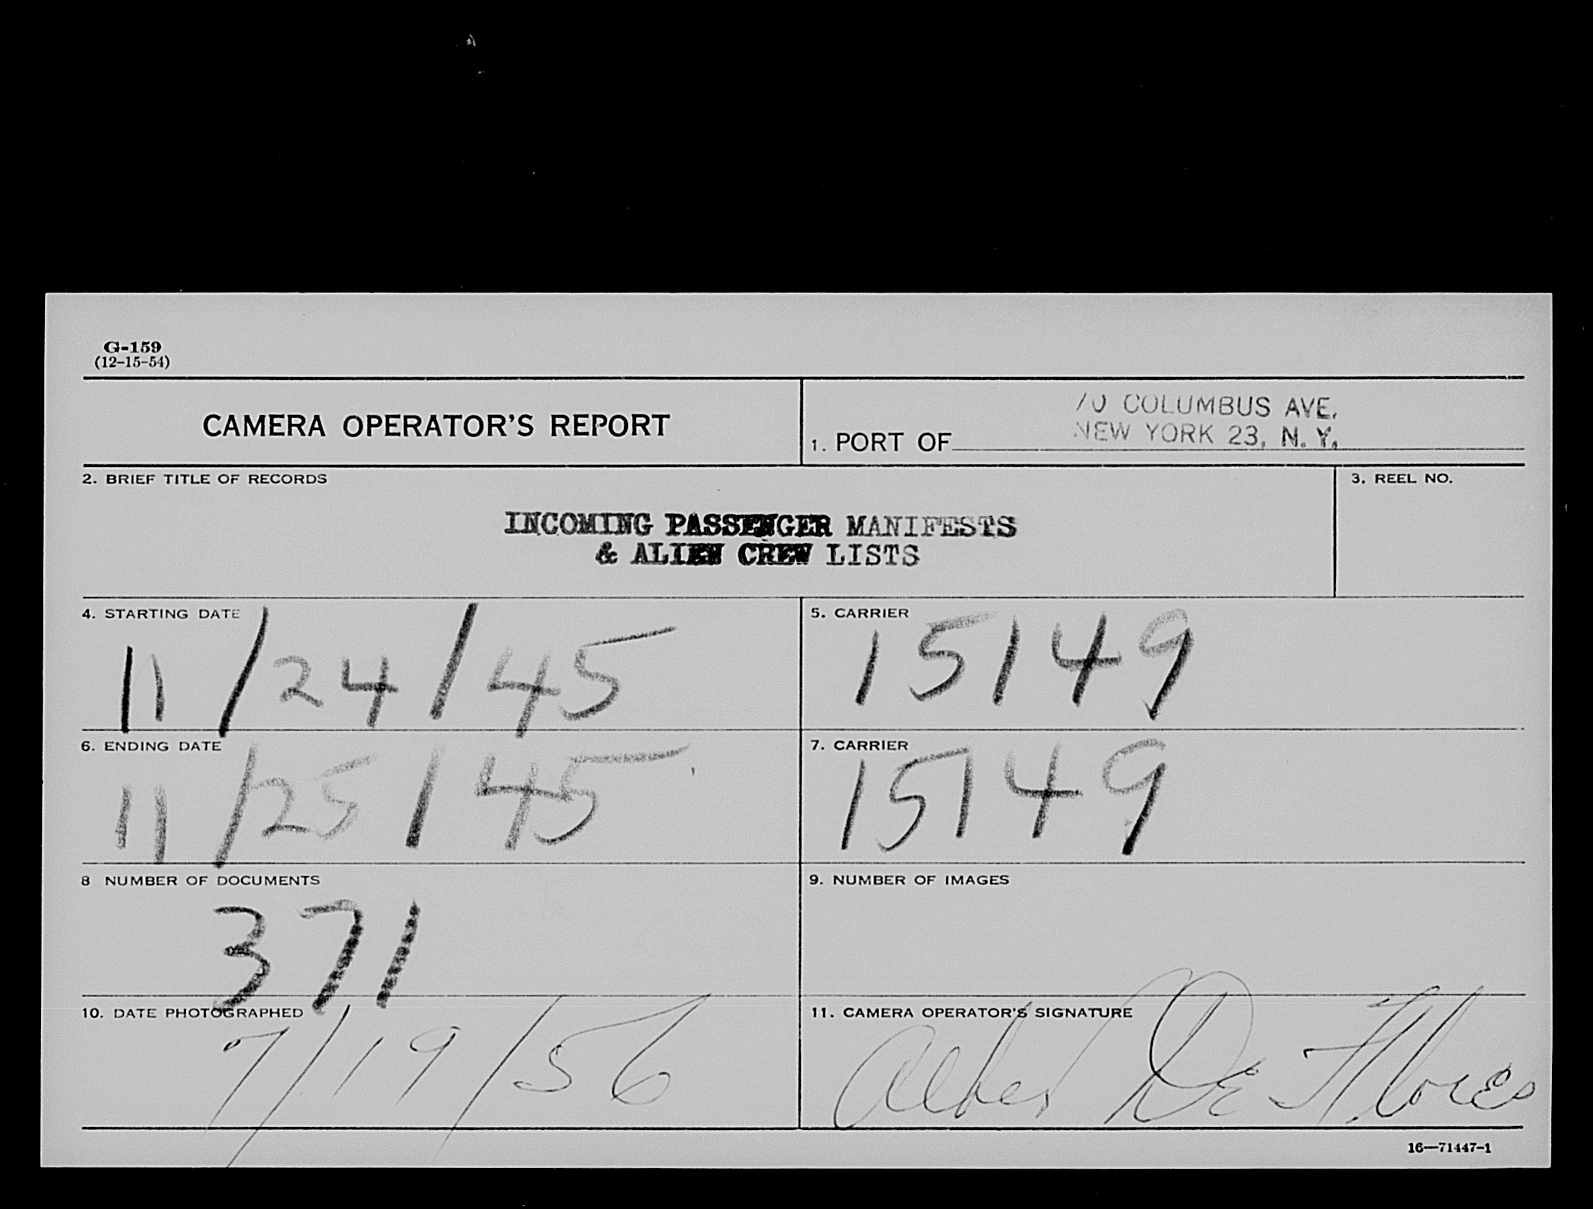 G-159
(12-15-54)
CAMERA OPERATOR'S REPORT
70 COLUMBUS AVE.
1. PORT OF NEW YORK 23, N. Y.
2. BRIEF TITLE OF RECORDS
3. REEL NO.
INCOMING PASSENGER MANIFESTS
& ALIEN CREW LISTS
4. STARTING DATE
11/24/45
5. CARRIER
15149
6. ENDING DATE
11/25/45
7. CARRIER
15149
8 NUMBER OF DOCUMENTS
371
9. NUMBER OF IMAGES
10. DATE PHOTOGRAPHED
7/19/56
11. CAMERA OPERATOR'S SIGNATURE
De Flores
16—71447-1